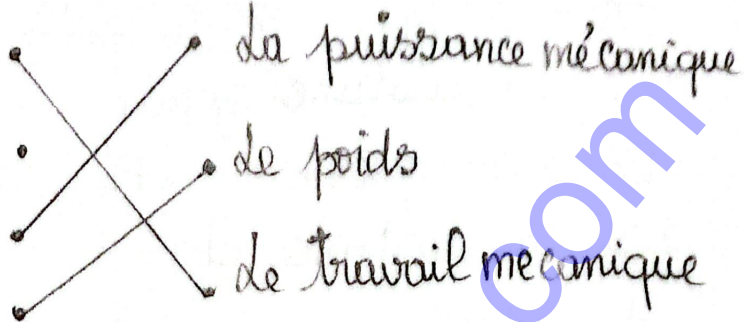 La puissance mécanique
Le poids
Le travail mecanique
com